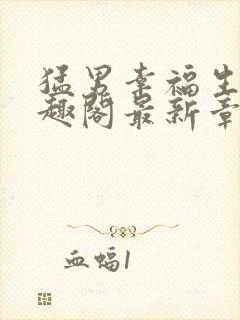 猛男幸福生
趣阁最新章
血蝠1